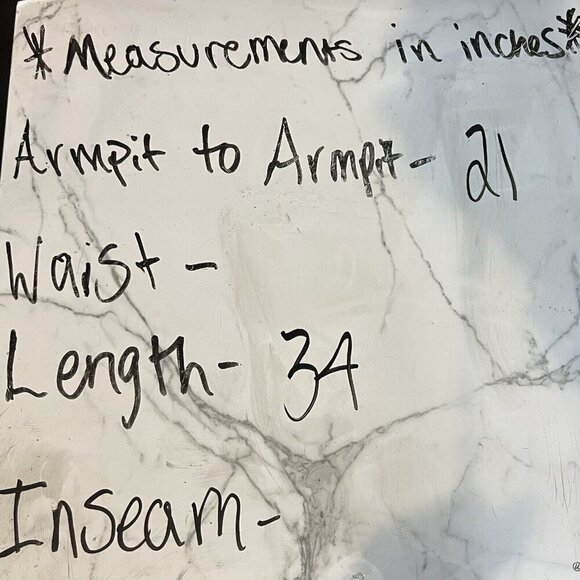 *Measurements in inches*
Armpit to Armpit- 21
Waist -
Length- 34
Inseam-